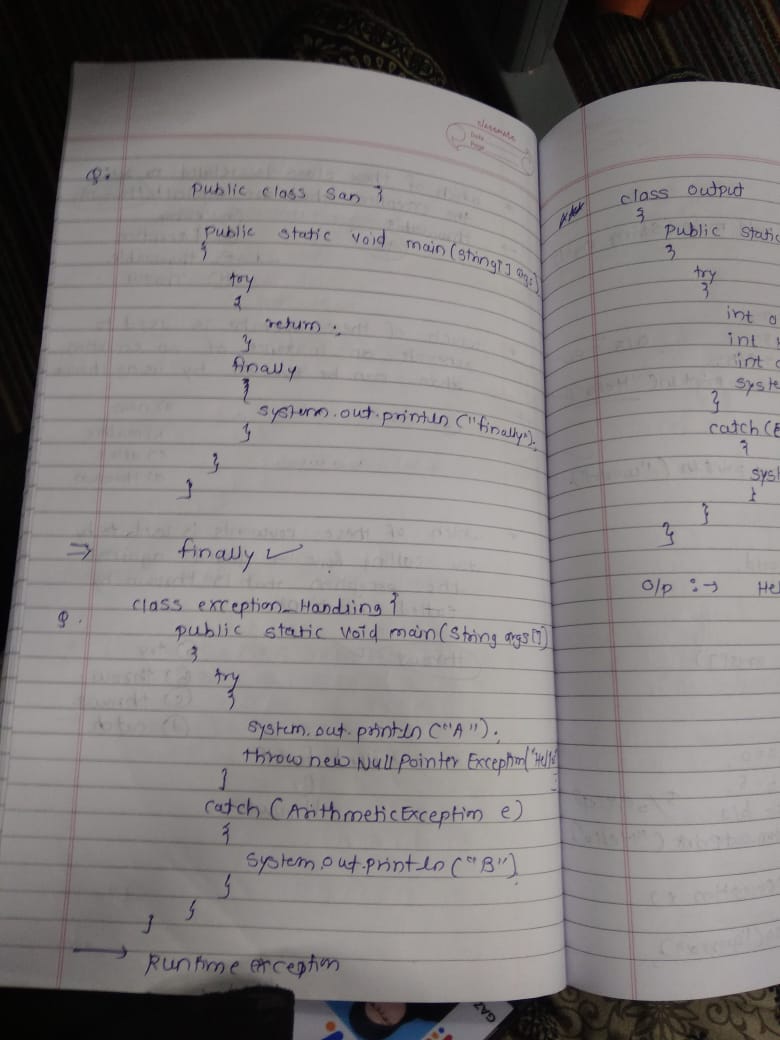 classmate
Date
Page
Q.
public class San {
public static void main(String[] args)
{
try
{
return ;
}
finally
{
system.out.println("finally");
}
}
}
⇒ finally ✓
Q. class exception_Handling {
public static void main(String args[])
{
try
{
system.out.println("A");
throw new NullPointer Exception("Hello
}
catch (ArithmeticException e)
{
system.out.println("B");
}
}
}
→ Runtime exception
class output
{
public static
{
try
{
int a
int
int
syste
}
catch(E
{
syst
}
}
}
O/p :→ Hel
GAZ